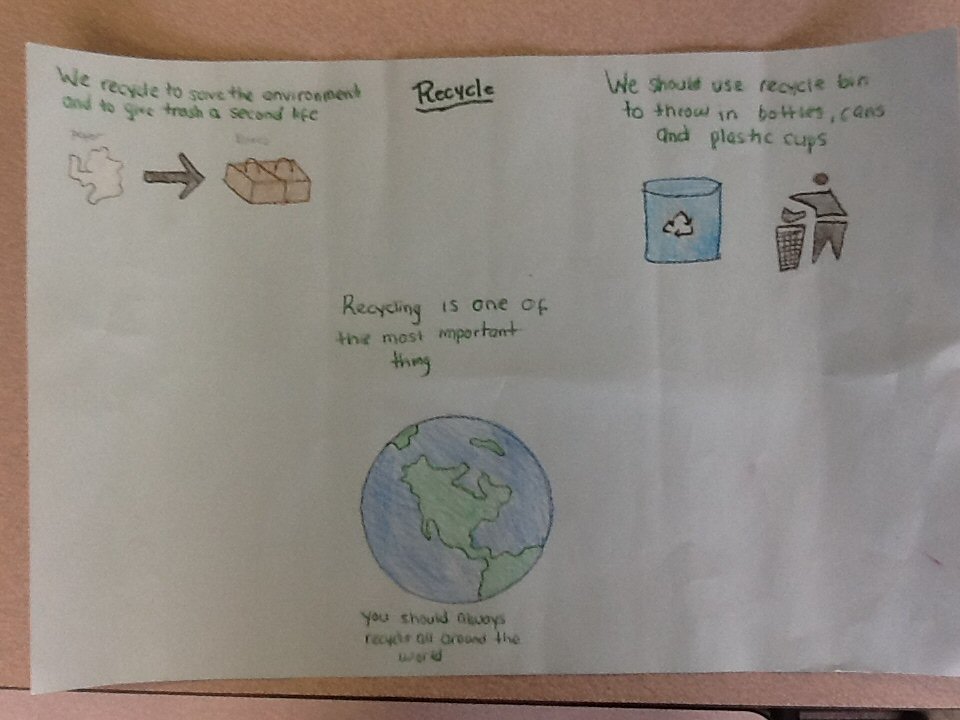 Recycle
We recycle to save the environment
and to give trash a second life
paper
We should use recycle bin
to throw in bottles, cans
and plastic cups
Recycling is one of
the most important
thing
you should always
recycle all around the
world